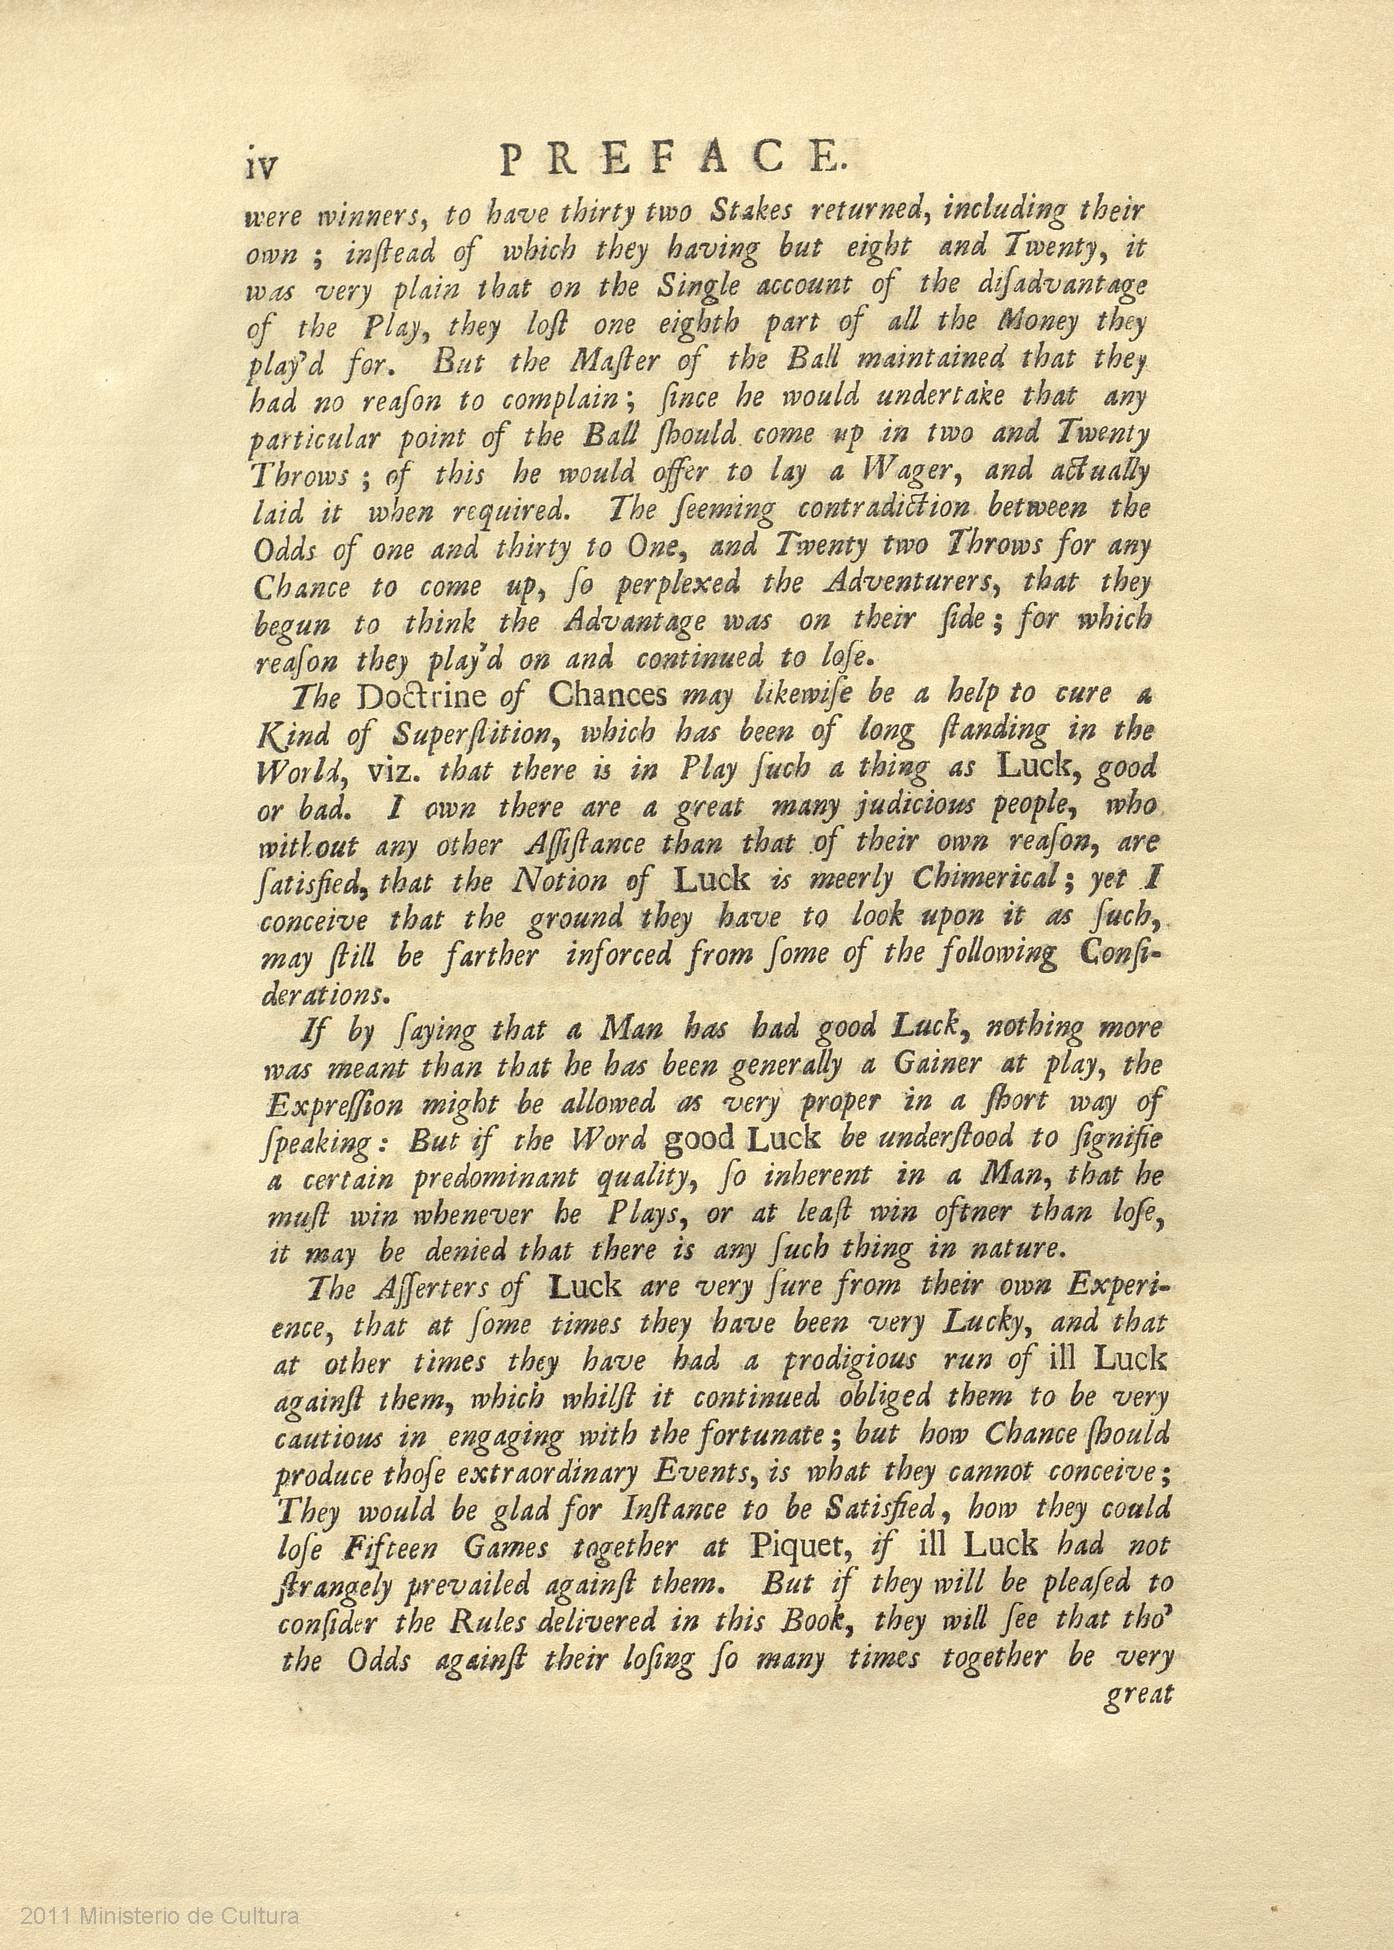 iv PREFACE.
were winners, to have thirty two Stakes returned, including their
own ; inſtead of which they having but eight and Twenty, it
was very plain that on the Single account of the diſadvantage
of the Play, they loſt one eighth part of all the Money they
play'd for. But the Maſter of the Ball maintained that they
had no reaſon to complain ; ſince he would undertake that any
particular point of the Ball ſhould come up in two and Twenty
Throws ; of this he would offer to lay a Wager, and actually
laid it when required. The ſeeming contradiction between the
Odds of one and thirty to One, and Twenty two Throws for any
Chance to come up, ſo perplexed the Adventurers, that they
begun to think the Advantage was on their ſide ; for which
reaſon they play'd on and continued to loſe.
The Doctrine of Chances may likewiſe be a help to cure a
Kind of Superſtition, which has been of long ſtanding in the
World, viz. that there is in Play ſuch a thing as Luck, good
or bad. I own there are a great many judicious people, who
without any other Aſſiſtance than that of their own reaſon, are
ſatisfied, that the Notion of Luck is meerly Chimerical ; yet I
conceive that the ground they have to look upon it as ſuch,
may ſtill be farther inforced from ſome of the following Conſi-
derations.
If by ſaying that a Man has had good Luck, nothing more
was meant than that he has been generally a Gainer at play, the
Expreſſion might be allowed as very proper in a ſhort way of
ſpeaking : But if the Word good Luck be underſtood to ſignifie
a certain predominant quality, ſo inherent in a Man, that he
muſt win whenever he Plays, or at leaſt win oftner than loſe,
it may be denied that there is any ſuch thing in nature.
The Aſſerters of Luck are very ſure from their own Experi-
ence, that at ſome times they have been very Lucky, and that
at other times they have had a prodigious run of ill Luck
againſt them, which whilſt it continued obliged them to be very
cautious in engaging with the fortunate ; but how Chance ſhould
produce thoſe extraordinary Events, is what they cannot conceive ;
They would be glad for Inſtance to be Satisfied, how they could
loſe Fifteen Games together at Piquet, if ill Luck had not
ſtrangely prevailed againſt them. But if they will be pleaſed to
conſider the Rules delivered in this Book, they will ſee that tho'
the Odds againſt their loſing ſo many times together be very
great
2011 Ministerio de Cultura